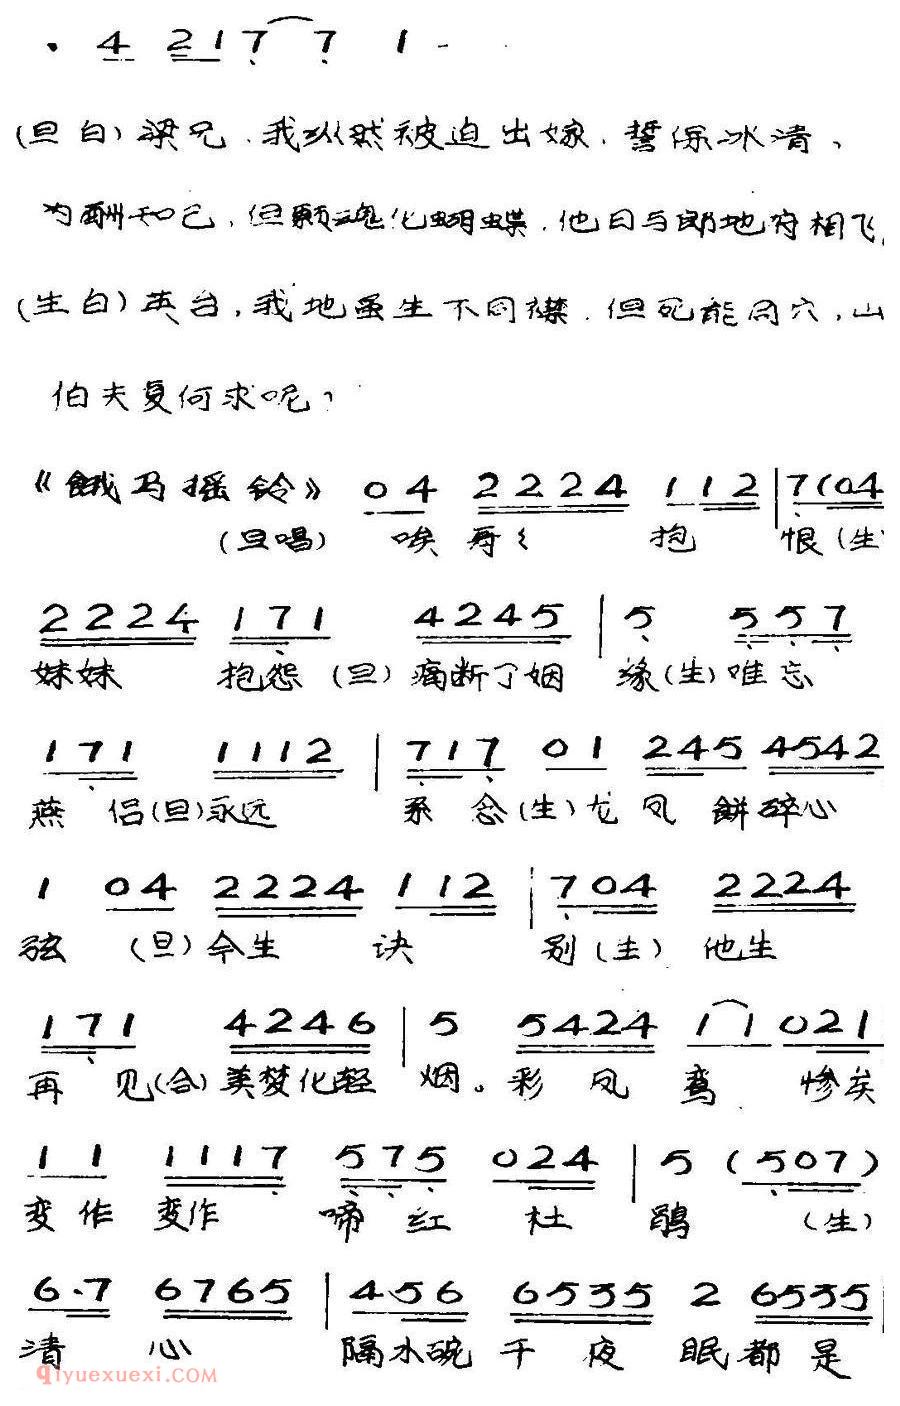 · 4 217 7 1 -
(旦白)梁兄.我纵然被迫出嫁.誓保冰清、
为酬知己,但愿魂化蝴蝶.他日与郎地府相飞.
(生白)英台,我地虽生不同襟.但死能同穴,山
伯夫复何求呢?
《饿马摇铃》 04 2224 112 | 7(04
(旦唱) 唉哥〻 抱 恨(生)
2224 171 4245 | 5 557
妹妹 抱怨(旦)痛断了姻 缘(生)唯忘
171 1112 | 717 01 245 4542
燕侣(旦)永远 系念(生)龙凤餅碎心
1 04 2224 112 | 704 2224
弦 (旦)今生 诀 别(生)他生
171 4246 | 5 5424 11 021
再见(合)美梦化轻 烟。彩凤鸾 惨矣
11 1117 575 024 | 5 (507)
变作 变作 啼红 杜 鹃 (生)
6·7 6765 | 4·56 6535 2 6535
清 心 隔水碗 千夜 眠都是
qiyuexuexi.com